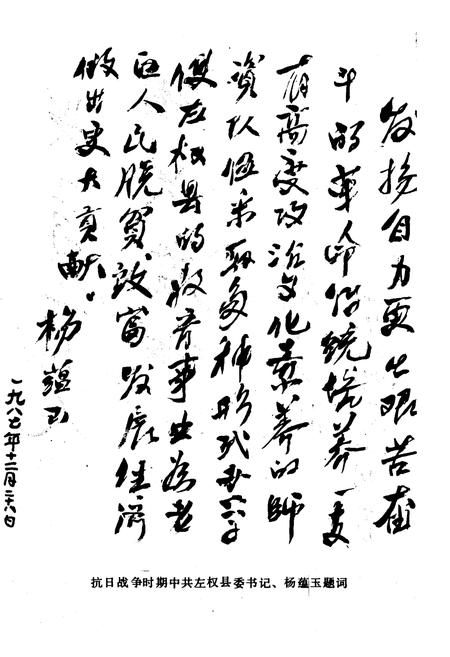 发扬自力更生艰苦奋
斗的革命传统培养一支
有高度政治文化素养的师
资队伍采取多种形式
使左权县的教育事业为老
区人民脱贫致富发展经济
做出更大贡献。
杨蕴玉
一九八七年十二月二十八日
抗日战争时期中共左权县委书记、杨蕴玉题词